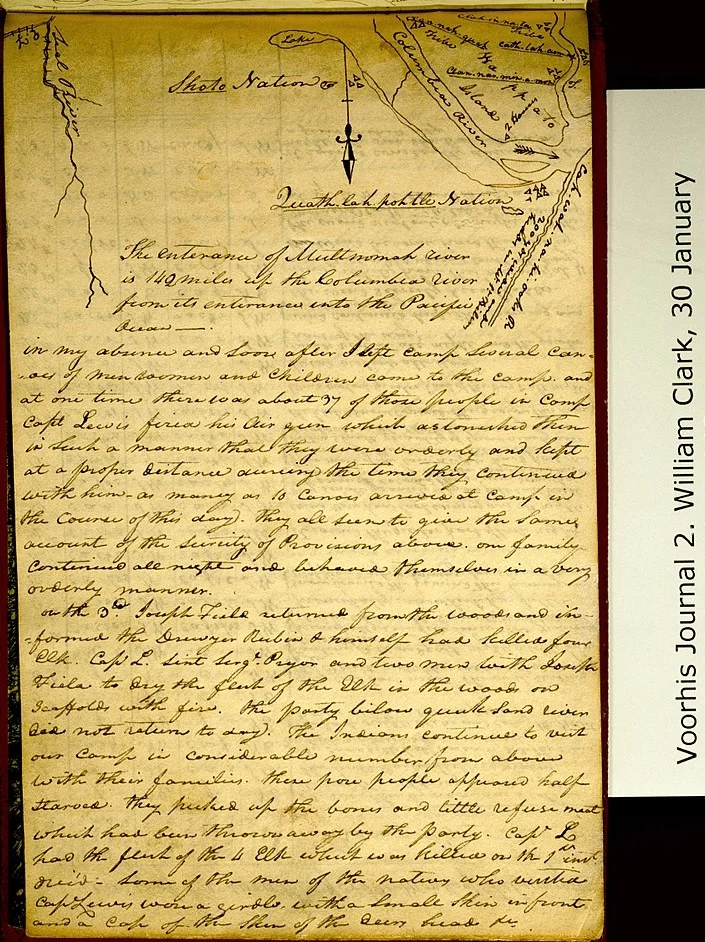 Seal River
Lake
Shoto Nation
Columbia River
Tribe
Clan.nar.min.a.mon
Wap pa to
Island
Quath.lah pohtle Nation
Cah.wah.na.hi.ooks R.
200 yds wide
The enterance of Multnomah river
is 142 miles up the Columbia river
from its enterance into the Pacific
Ocean —.
in my absence and Soon after I left camp Several Can-
oes of men women and Children came to the camp. and
at one time there was about 37 of those people in Camp
Capt Lewis fired his Air gun which astonished them
in Such a manner that they were orderly and kept
at a proper distance dureing the time they continued
with him- as maney as 10 Canoes arrived at Camp in
the Course of this day). they all Seem to give the Same
account of the Scercity of Provisions above. one family
continued all night and behaved themselves in a very
orderly manner.
on the 3rd Joseph Field returned from the woods and in-
-formed the Drewyer Rubin & himself had killed four
Elk. Capt L. Sent Sergt. Pryor and two men with Joseph
Field to dry the flesh of the Elk in the woods on
Scaffolds with fire. the party below quick Sand river
did not return to day). The Indians continue to visit
our Camp in considerable number from above
with their families. these pore people appeared half
Starved. they picked up the bones and little refuse meat
which had been thrown away by the party. Capt L
had the flesh of the 4 Elk which was killed on the 1st inst
dried- Some of the men of the natives who visited
Capt Lewis wore a girdle with a Small Skin in front
and a Cap of the Skin of the deers head &c.
Voorhis Journal 2. William Clark, 30 January